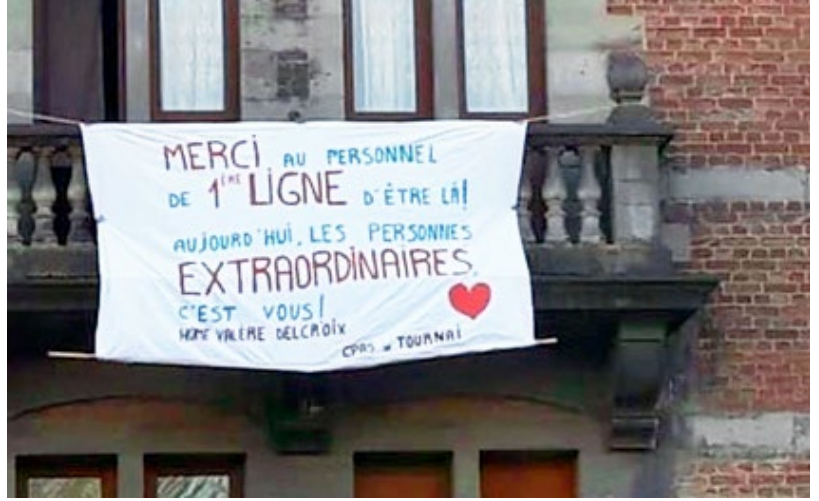 MERCI AU PERSONNEL
DE 1ÈRE LIGNE D'ÊTRE LÀ!
AUJOURD'HUI, LES PERSONNES
EXTRAORDINAIRES,
C'EST VOUS!
HOME VALÈRE DELCROIX
CPAS - TOURNAI